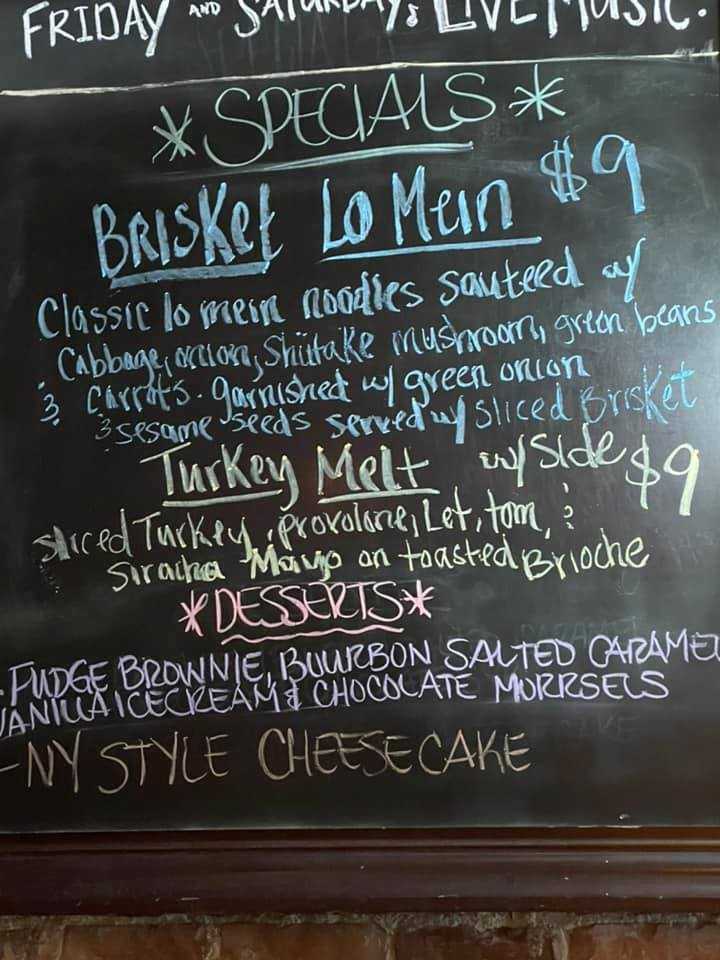 FRIDAY AND SATURDAY: LIVE MUSIC.
*SPECIALS*
BRISKet Lo Mein $9
Classic lo mein noodles sauteed w/
Cabbage, onion, Shiitake mushroom, green beans
& Carrots. garnished w/ green onion
& sesame seeds served w/ sliced BrisKet
Turkey Melt w/ side $9
sliced Turkey, provolone, Let, tom, &
Siracha Mayo on toasted Brioche
*DESSERTS*
- FUDGE BROWNIE, BUURBON SALTED CARAMEL
VANILLA ICECREAM & CHOCOLATE MORRSELS
- NY STYLE CHEESECAKE